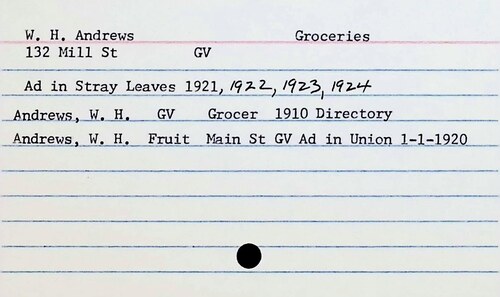 W. H. Andrews Groceries
132 Mill St GV
Ad in Stray Leaves 1921, 1922, 1923, 1924
Andrews, W. H. GV Grocer 1910 Directory
Andrews, W. H. Fruit Main St GV Ad in Union 1-1-1920